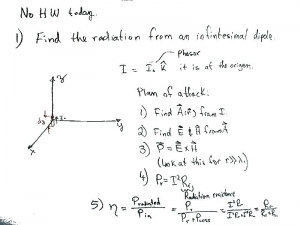 No HW today.
1) Find the radiation from an infinitesimal dipole.
Phasor
I = I₀ ẑ it is at the origin.
z
Plan of attack:
1) Find A(r) from I.
2) Find E & H from A
3) P = E × H
(look at this for r>>λ.)
4) Pr = I²Rr
Radiation resistance
5) η = Pradiated / Pin = Pr / (Pr + Ploss) = I²R / (I²R + I²R) = Rr / (Rr + R)
y
x